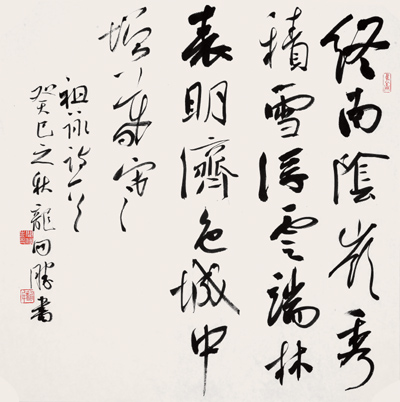 終南陰嶺秀
積雪浮雲端林
表明濟色城中
增暮寒
祖詠詩
癸巳之秋龍勝書